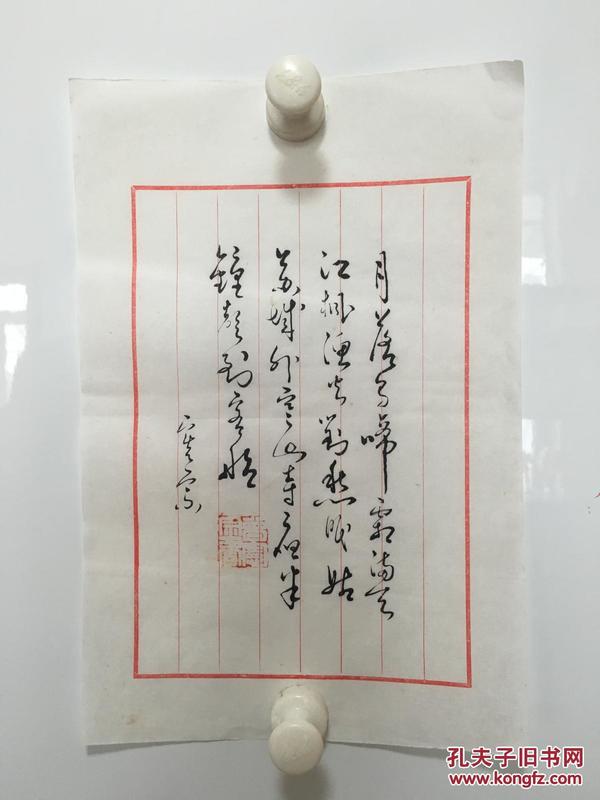 月落烏啼霜滿天
江楓漁火對愁眠姑
蘇城外寒山寺夜半
鐘聲到客船
孔夫子旧书网
www.kongfz.com